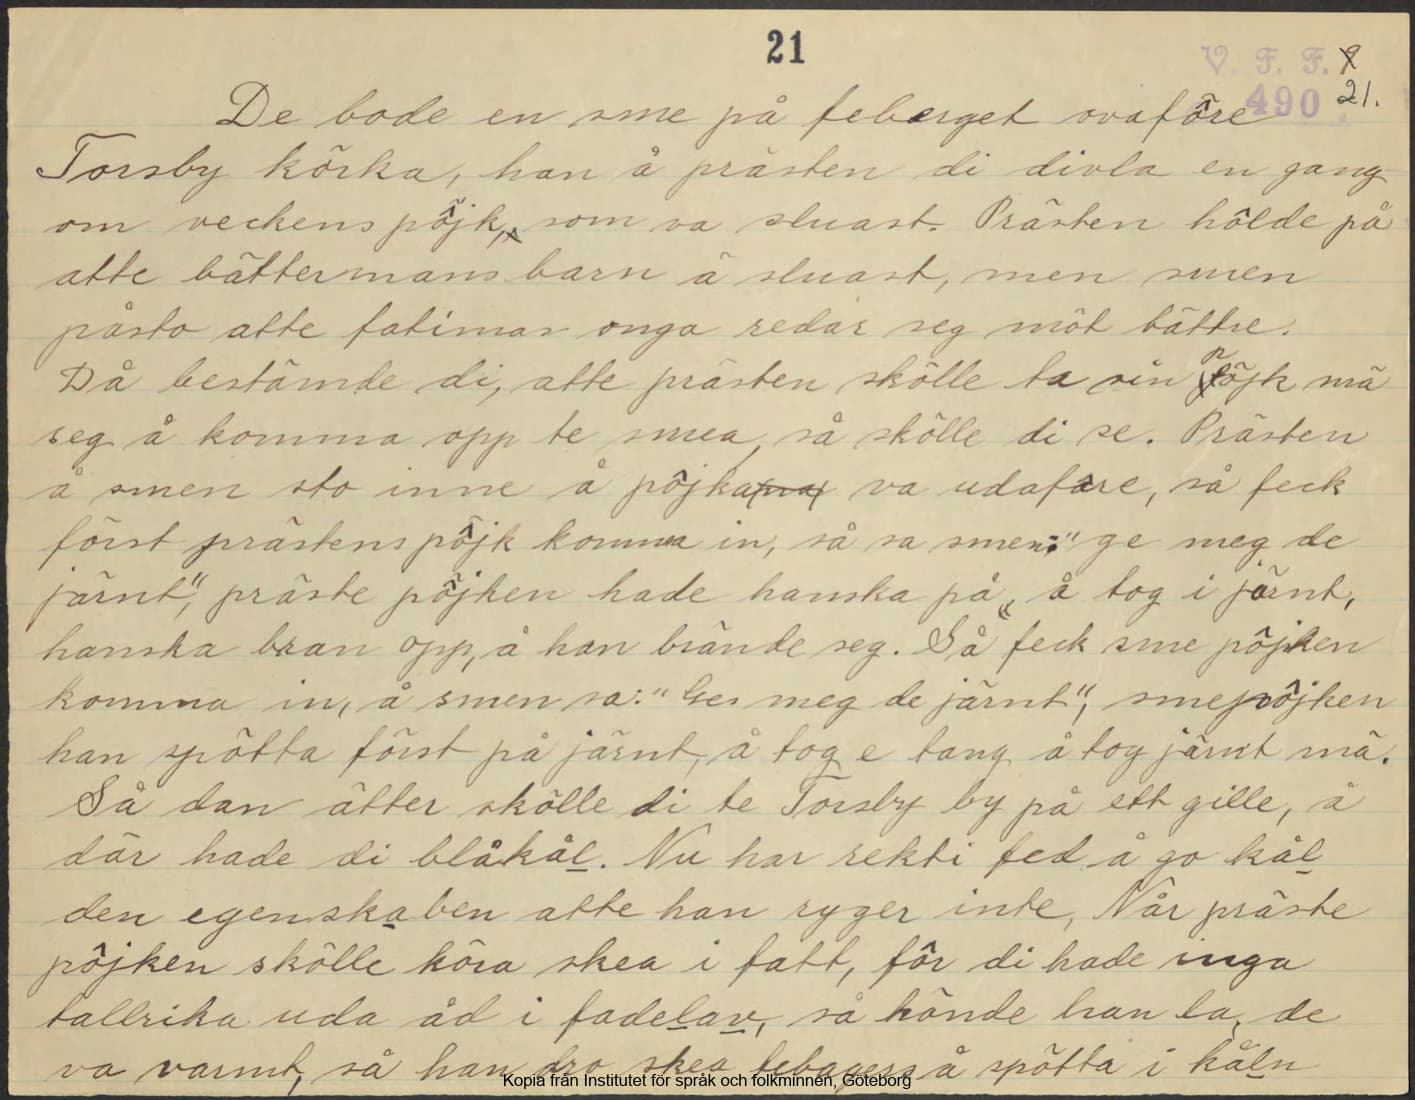 21
V. F. F. 9
490 21.
De bode en sme på feberget ovaföre
Torsby körka, han å prästen di divla en gang
om veckens pöjk, som va sluast. Prästen hôlde på
atte bättermans barn ä sluast, men smen
påsto atte fatimas onga redar seg möt bättre.
Då bestämde di, atte prästen skölle ta sin pöjk mä
seg å komma opp te smea, så skölle di se. Prästen
å smen sto inne å pôjkana va udaføre, så feck
först prästens pôjk komma in, så sa smen: "ge meg de
järnt", präste pöjken hade hanska på, å tog i järnt,
hanska bran opp, å han brände seg. Så feck sme pôjken
komma in, å smen sa: "Ges meg de järnt", smepôjken
han spôtta först på järnt, å tog e tang å tog järnt mä.
Så dan ätter skölle di te Torsby by på ett gille, å
där hade di blåkål. Nu har rekti fed å go kål
den egenskaben atte han ryger inte, Når präste
pôjken skölle köra skea i fatt, fôr di hade inga
tallrika uda åd i fadelav, så kände han ta, de
va varmt, så han dro skea tebagers å spôtta i kåln
Kopia från Institutet för språk och folkminnen, Göteborg